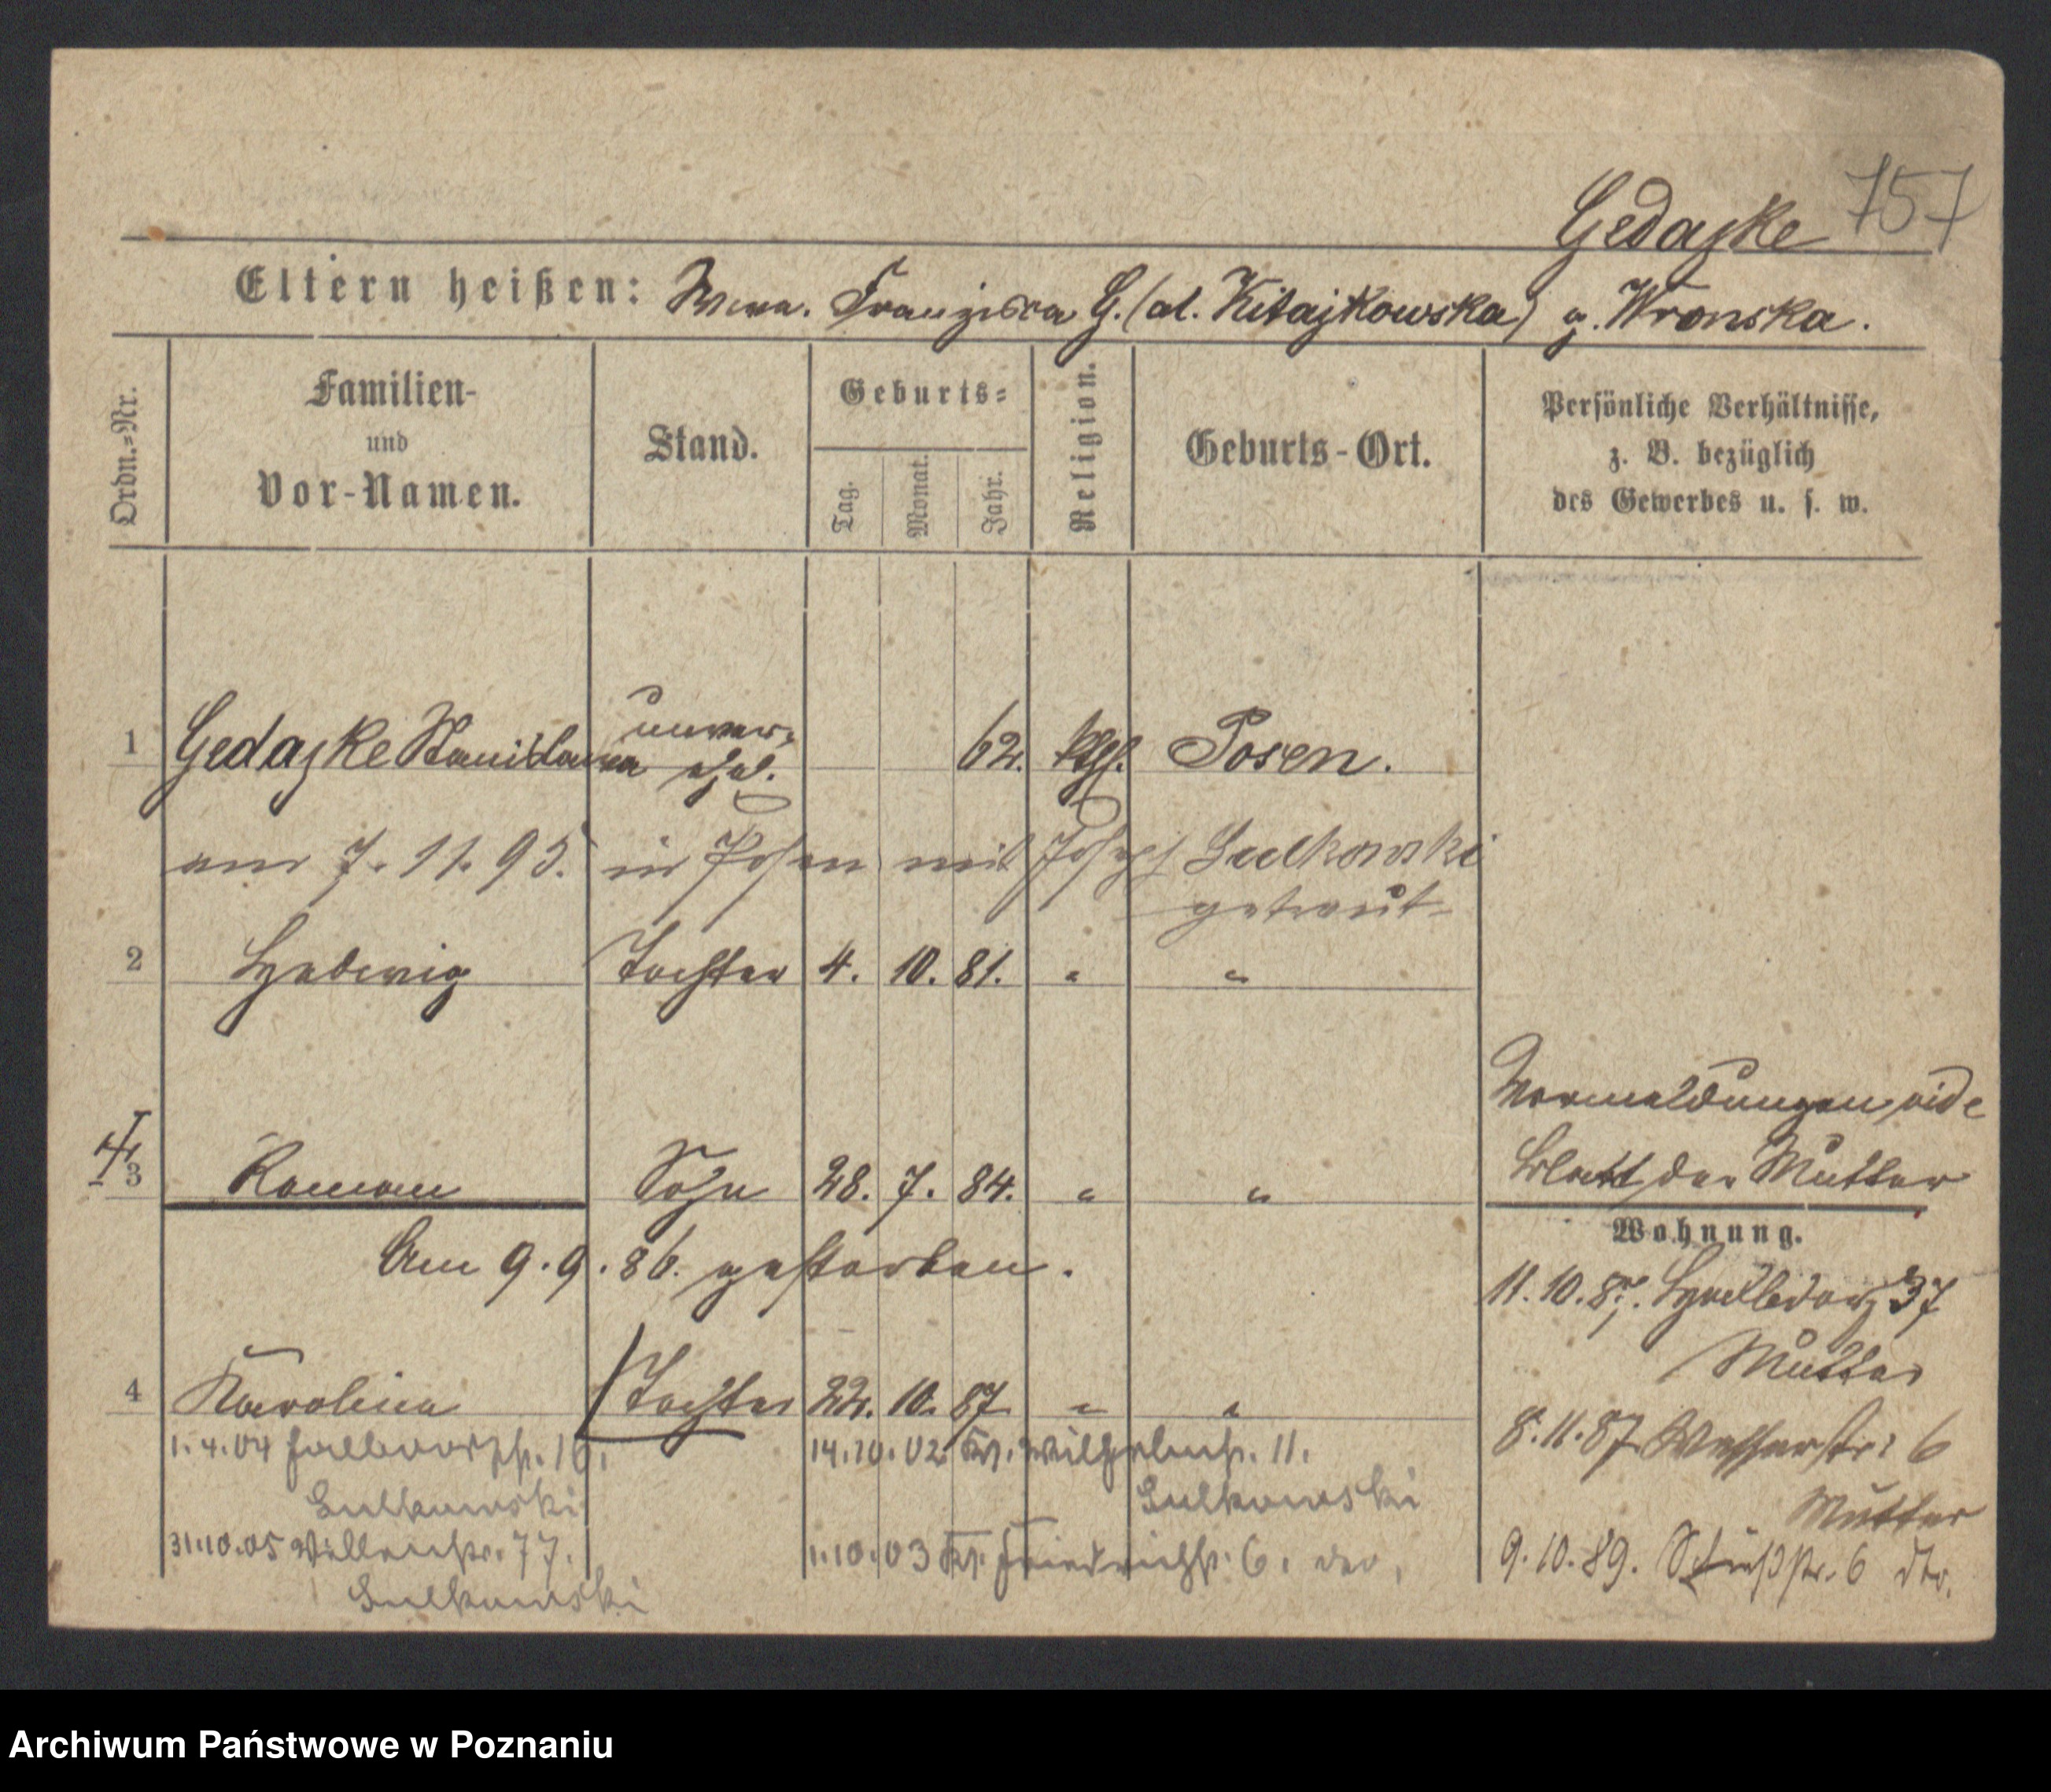 757
Gedaske
Eltern heißen: Wwa. Franziska G. (al. Kitajkowska) g. Wronska.
Ordn.-Nr.
Familien-
und
Vor-Namen.
Stand.
Geburts-
Tag.
Monat.
Jahr.
Religion.
Geburts-Ort.
Persönliche Verhältnisse,
z. B. bezüglich
des Gewerbes u. s. w.
1 Gedaske Stanislawa unver-
ehel. 62. kth. Posen.
am 7. 11. 95. in Posen mit Joseph Sulkowski
getraut
2 Hedwig Tochter 4. 10. 81. " "
3 Roman Sohn 28. 7. 84. " "
Am 9. 9. 86. gestorben.
4 Karolina Tochter 22. 10. 87 " "
1.4.04 Halbdorfstr. 16.
Sulkowski
31.10.05 Wallischstr. 77.
Sulkowski
14.10.02 Kr. Wilhelmstr. 11.
Sulkowski
1.10.03 Kr. Friedrichstr. 6.
Vormeldungen vide
Blatt der Mutter
Wohnung.
11.10.87. 37
Mutter
8.11.87 Wasserstr. 6
Mutter
9.10.89. 6 dto.
Archiwum Państwowe w Poznaniu